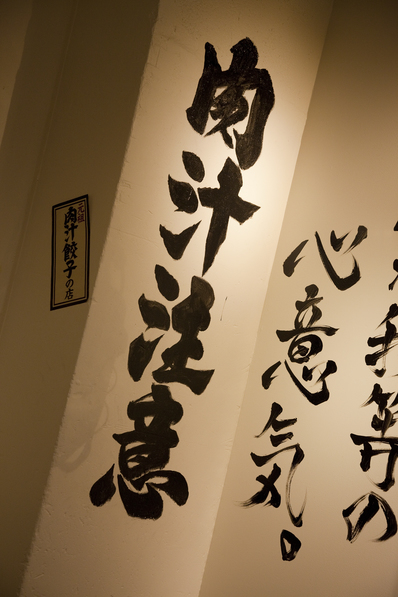 手等の
心意気。
肉汁注意
元祖
肉汁餃子の店